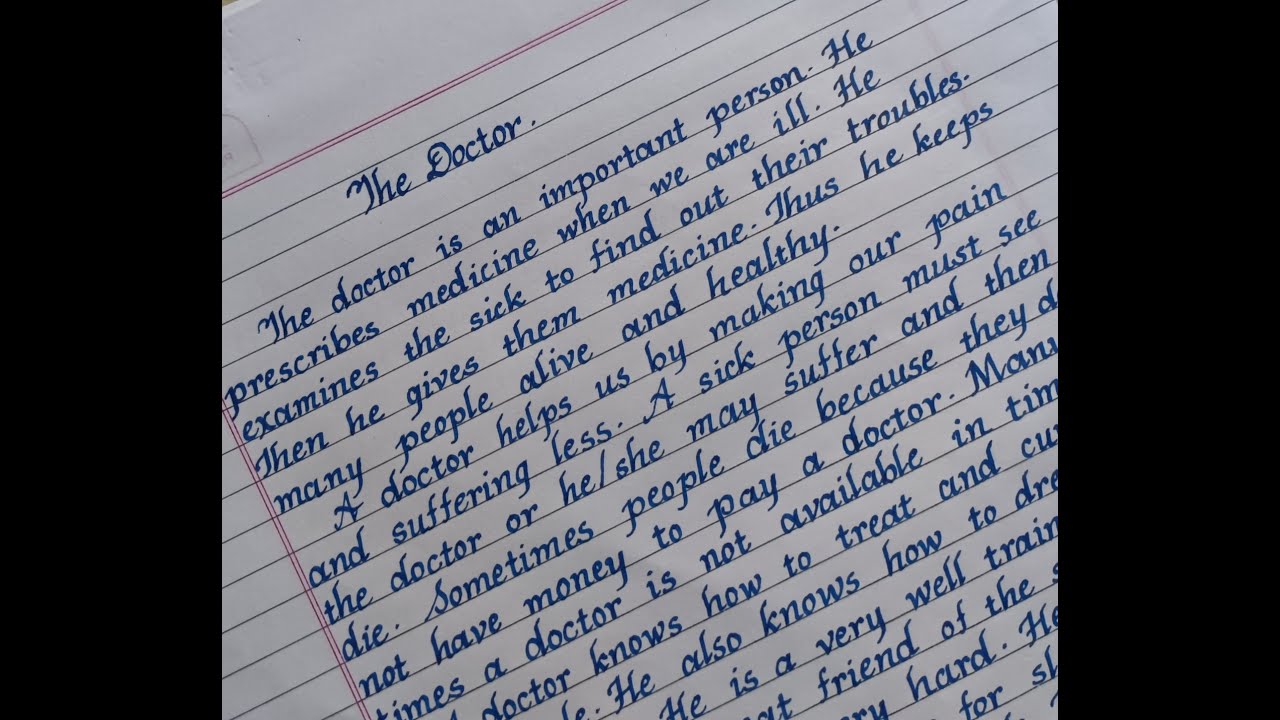 The Doctor.
The doctor is an important person. He
prescribes medicine when we are ill. He
examines the sick to find out their troubles.
Then he gives them medicine. Thus he keeps
many people alive and healthy.
A doctor helps us by making our pain
and suffering less. A sick person must see
the doctor or he/she may suffer and then
die. Sometimes people die because they d
not have money to pay a doctor. Many
times a doctor is not available in tim
doctor knows how to treat and cu
He also knows how to dre
He is a very well train
friend of the s
hard. He
for sh